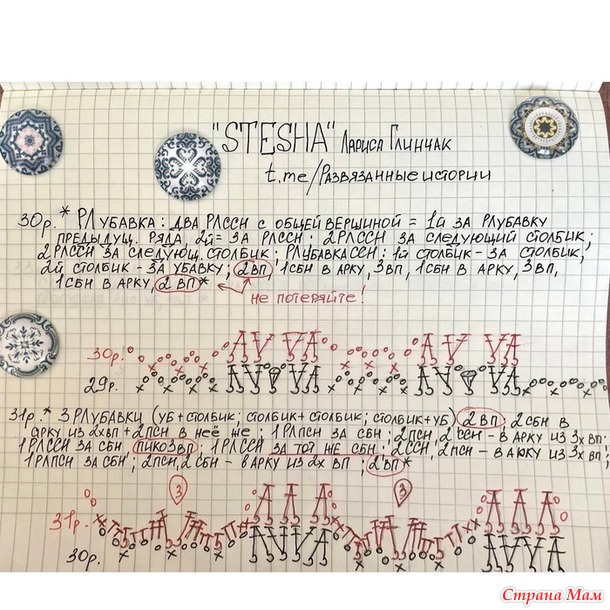 "STESHA" Лариса Глинчак
t.me/Развязанные истории
30р. * РЛУБАВКА: ДВА РЛССН С ОБЩЕЙ ВЕРШИНОЙ = 1Й ЗА РЛУБАВКУ
ПРЕДЫДУЩ. РЯДА, 2Й= ЗА РЛССН; 2РЛССН ЗА СЛЕДУЮЩИЙ СТОЛБИК;
2РЛССН ЗА СЛЕДУЮЩ. СТОЛБИК; РЛУБАВКА ССН: 1Й СТОЛБИК - ЗА СТОЛБИК,
2Й СТОЛБИК - ЗА УБАВКУ; 2ВП, 1СБН В АРКУ, 3ВП, 1СБН В АРКУ, 3ВП,
1СБН В АРКУ, 2ВП *
НЕ ПОТЕРЯЙТЕ!
30р.
29р.
31р. * 3РЛУБАВКИ (УБ+СТОЛБИК; СТОЛБИК+СТОЛБИК; СТОЛБИК+УБ) 2ВП; 2СБН В
АРКУ ИЗ 2ХВП+2ПСН В НЕЁ ЖЕ; 1РЛПСН ЗА СБН; 2ПСН, 2ССН - В АРКУ ИЗ 3Х ВП;
1РЛССН ЗА СБН, ПИКО3ВП; 1РЛССН ЗА ТОТ ЖЕ СБН; 2ССН, 2ПСН - В АРКУ ИЗ 3Х ВП;
1РЛПСН ЗА СБН; 2ПСН, 2СБН - В АРКУ ИЗ 2Х ВП; 2ВП *
3 3
31р.
30р.
Страна Мам